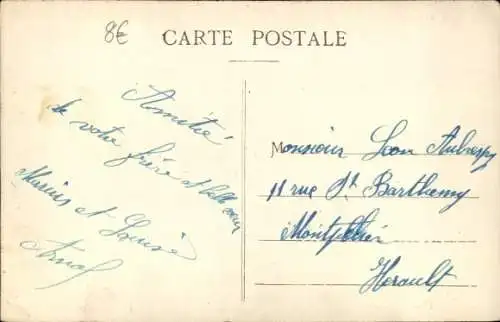 8€
CARTE POSTALE
Amitié
de votre frère et belle sœur
Marius et Louise
Monsieur Leon
11 rue St Barthemy
Montpellier
Herault